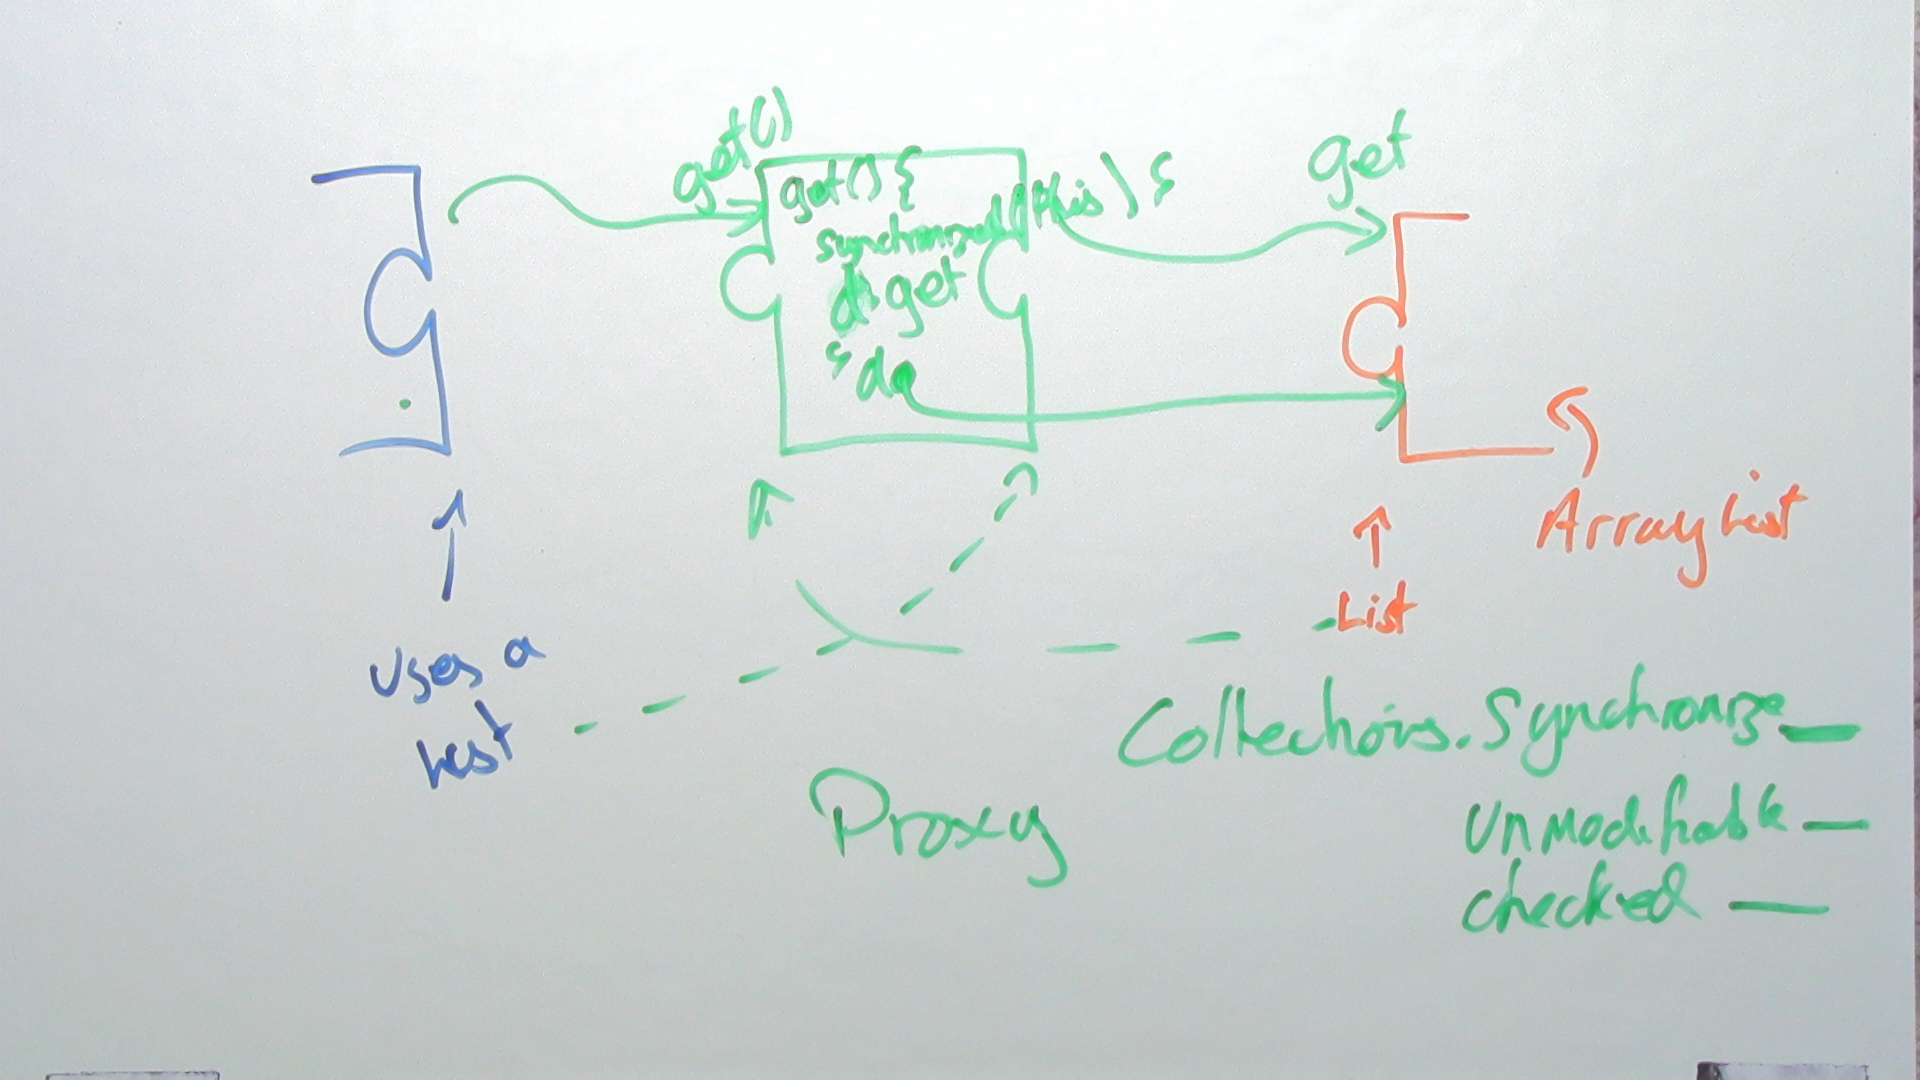 get()
get
get() {
synchronized (this) {
d.get
}
de
ArrayList
List
uses a
List
Collections.Synchronize
Proxy
Unmodifiable
checked